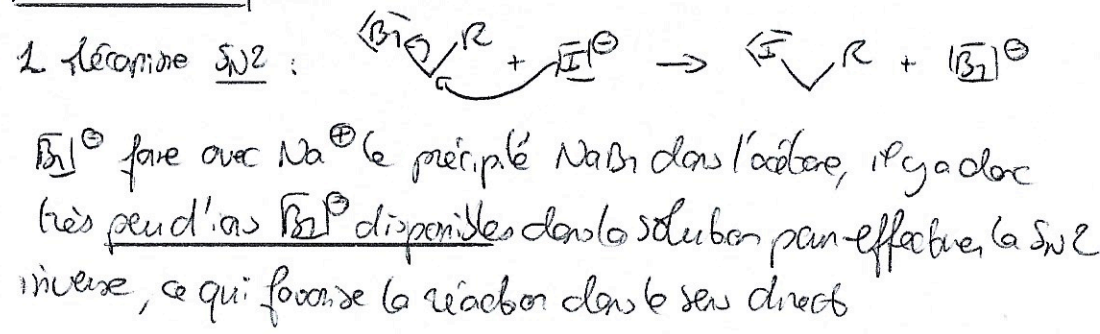 1. Mécanisme SN2 : |Br R + |I|⊖ → |I R + |Br|⊖
|Br|⊖ forme avec Na⊕ le précipité NaBr dans l'acétone, il y a donc
très peu d'ions |Br|⊖ disponibles dans la solution pour effectuer la SN2
inverse, ce qui favorise la réaction dans le sens direct